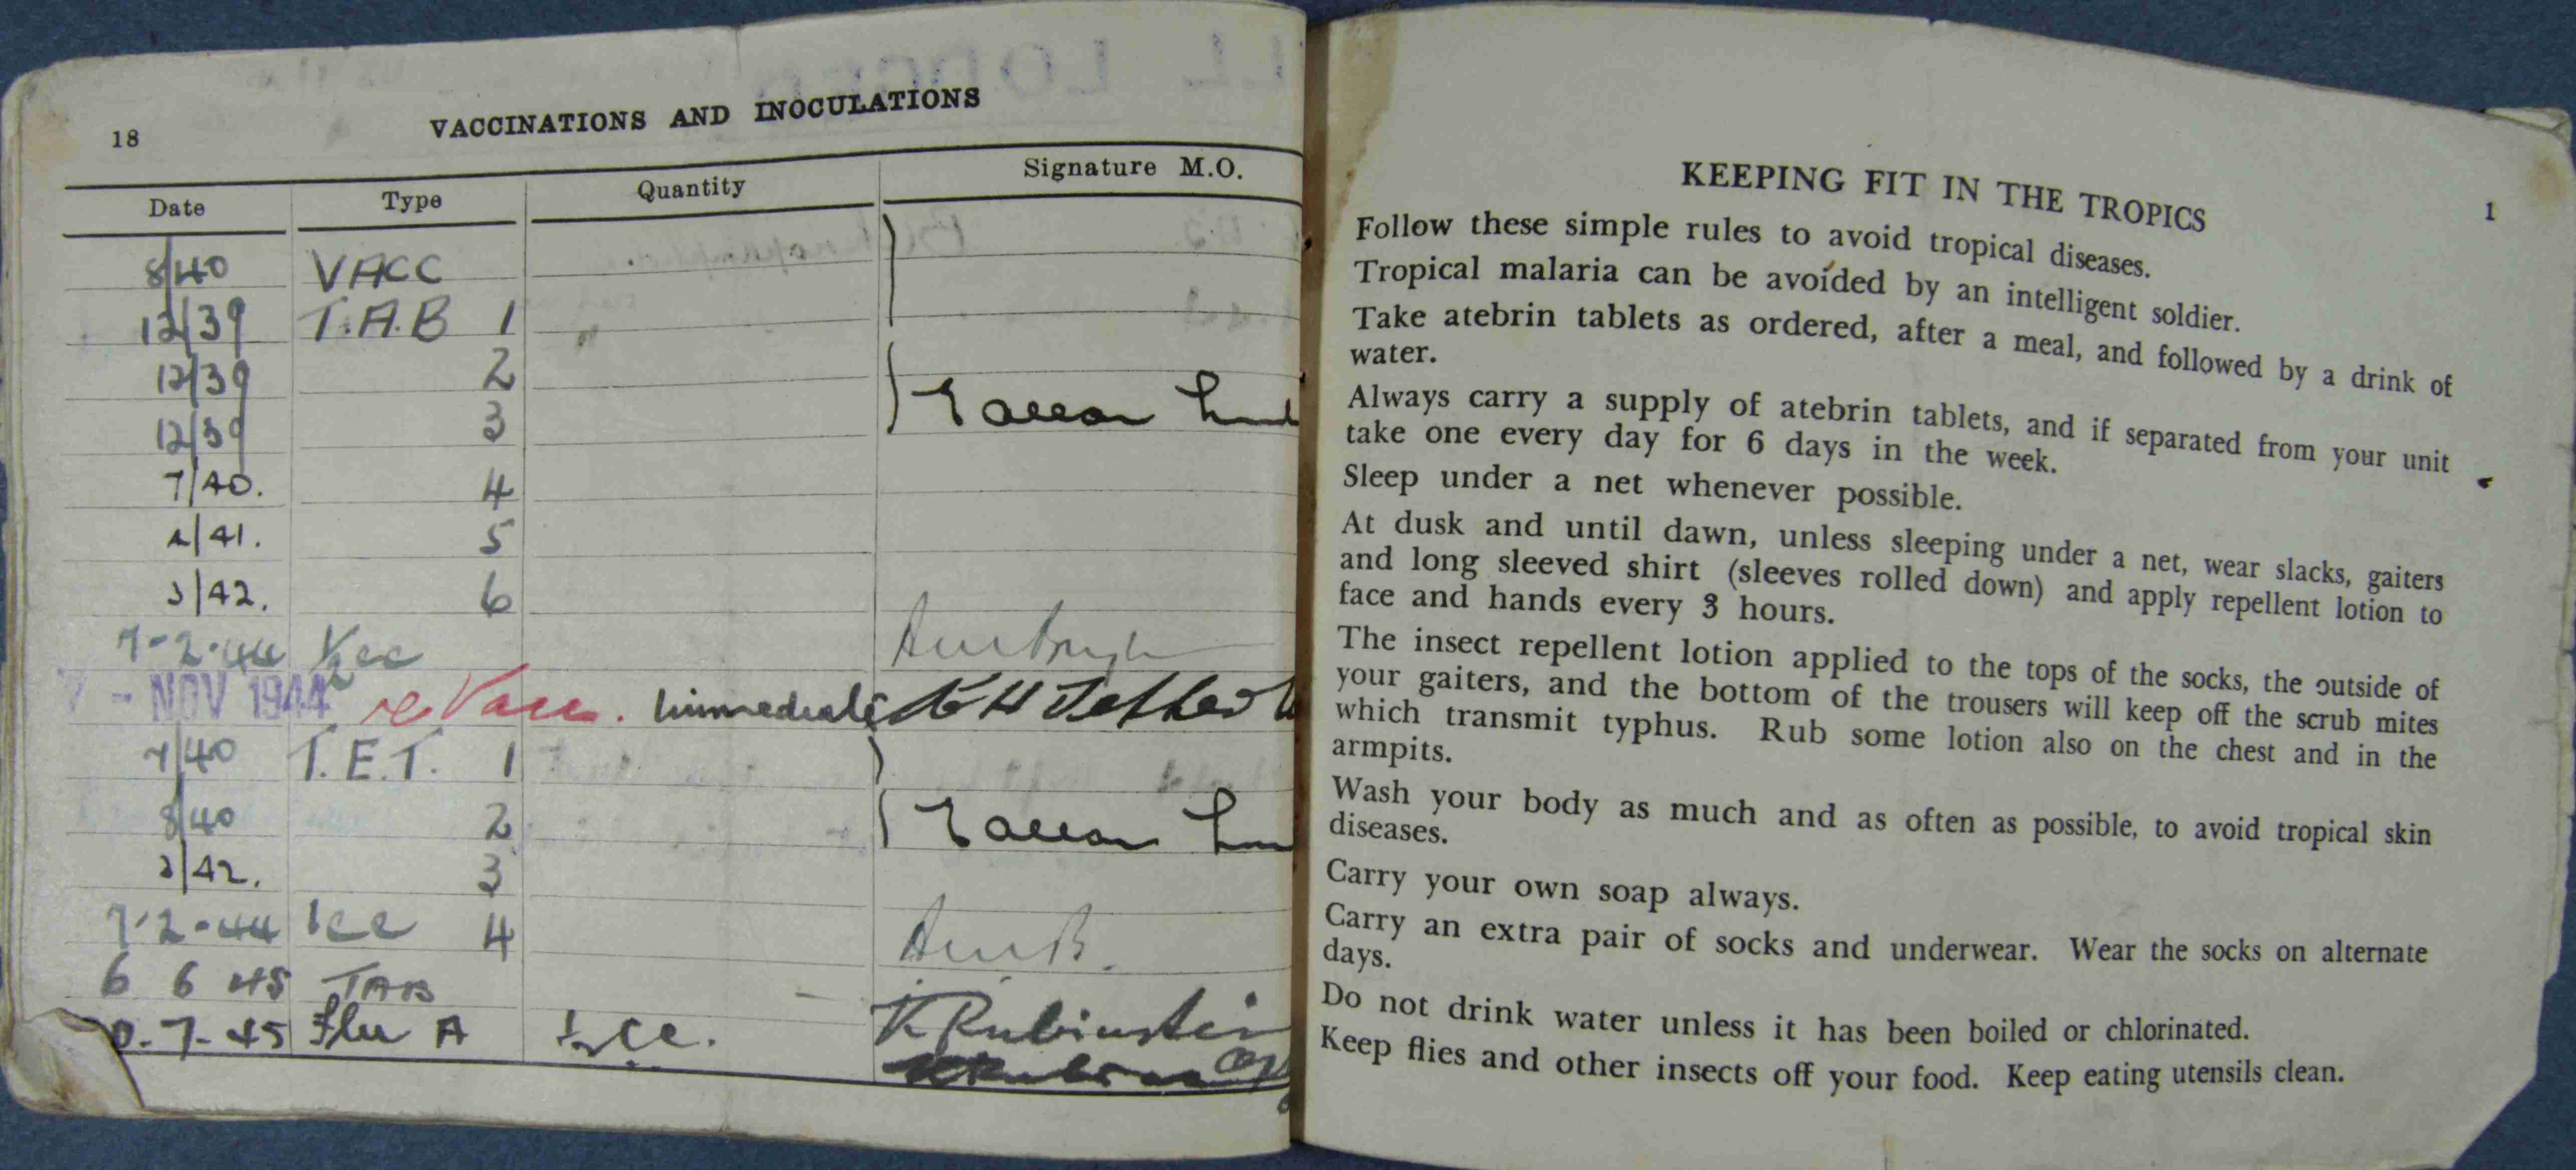 18
VACCINATIONS AND INOCULATIONS
Date Type Quantity Signature M.O.
8/40 VACC
12/39 T.A.B 1
12/39 2
12/39 3
7/40. 4
/41. 5
3/42. 6
7-2-44 ½cc
7 - NOV 1944 re Vacc. Immediate
7/40 T.E.T. 1
8/40 2
3/42. 3
7-2-44 1cc 4
6 6 45 TAB K Rubinstein
0-7-45 Flu A 1cc.
KEEPING FIT IN THE TROPICS
1
Follow these simple rules to avoid tropical diseases.
Tropical malaria can be avoided by an intelligent soldier.
Take atebrin tablets as ordered, after a meal, and followed by a drink of
water.
Always carry a supply of atebrin tablets, and if separated from your unit
take one every day for 6 days in the week.
Sleep under a net whenever possible.
At dusk and until dawn, unless sleeping under a net, wear slacks, gaiters
and long sleeved shirt (sleeves rolled down) and apply repellent lotion to
face and hands every 3 hours.
The insect repellent lotion applied to the tops of the socks, the outside of
your gaiters, and the bottom of the trousers will keep off the scrub mites
which transmit typhus. Rub some lotion also on the chest and in the
armpits.
Wash your body as much and as often as possible, to avoid tropical skin
diseases.
Carry your own soap always.
Carry an extra pair of socks and underwear. Wear the socks on alternate
days.
Do not drink water unless it has been boiled or chlorinated.
Keep flies and other insects off your food. Keep eating utensils clean.